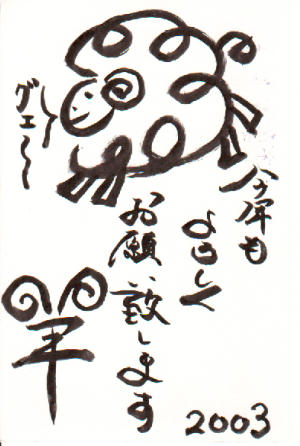 今年も
よろしく
お願い致します
グエ〜〜
羊
2003